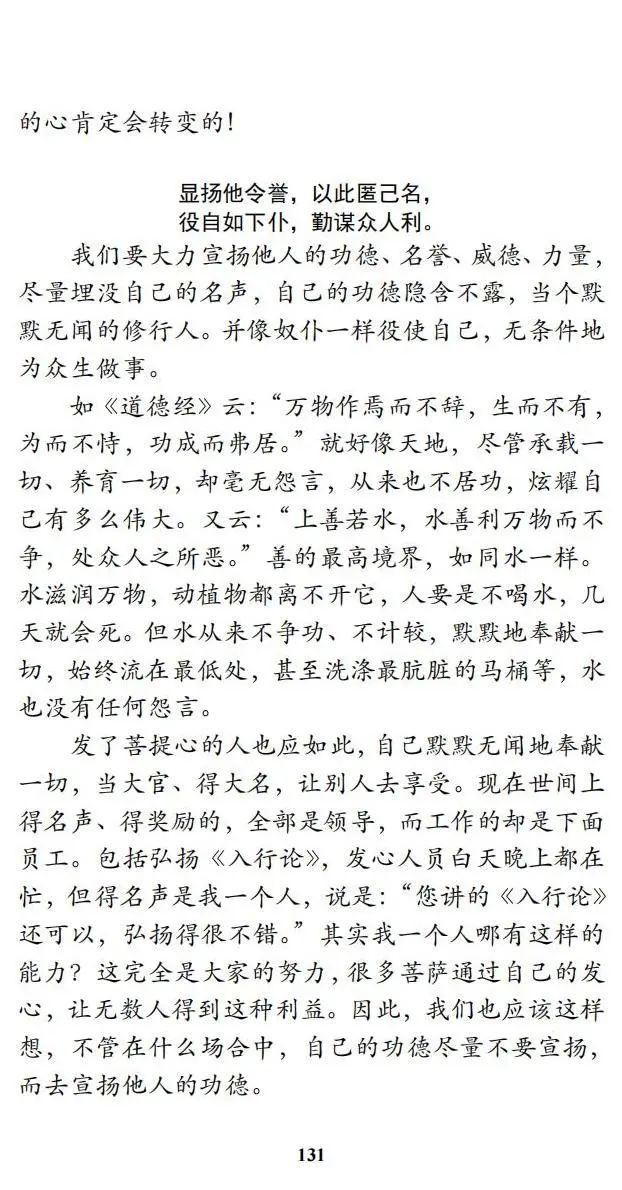 的心肯定会转变的！
显扬他令誉，以此匿己名，
役自如下仆，勤谋众人利。
我们要大力宣扬他人的功德、名誉、威德、力量，
尽量埋没自己的名声，自己的功德隐含不露，当个默
默无闻的修行人。并像奴仆一样役使自己，无条件地
为众生做事。
如《道德经》云：“万物作焉而不辞，生而不有，
为而不恃，功成而弗居。”就好像天地，尽管承载一
切、养育一切，却毫无怨言，从来也不居功，炫耀自
己有多么伟大。又云：“上善若水，水善利万物而不
争，处众人之所恶。”善的最高境界，如同水一样。
水滋润万物，动植物都离不开它，人要是不喝水，几
天就会死。但水从来不争功、不计较，默默地奉献一
切，始终流在最低处，甚至洗涤最肮脏的马桶等，水
也没有任何怨言。
发了菩提心的人也应如此，自己默默无闻地奉献
一切，当大官、得大名，让别人去享受。现在世间上
得名声、得奖励的，全部是领导，而工作的却是下面
员工。包括弘扬《入行论》，发心人员白天晚上都在
忙，但得名声是我一个人，说是：“您讲的《入行论》
还可以，弘扬得很不错。”其实我一个人哪有这样的
能力？这完全是大家的努力，很多菩萨通过自己的发
心，让无数人得到这种利益。因此，我们也应该这样
想，不管在什么场合中，自己的功德尽量不要宣扬，
而去宣扬他人的功德。
131